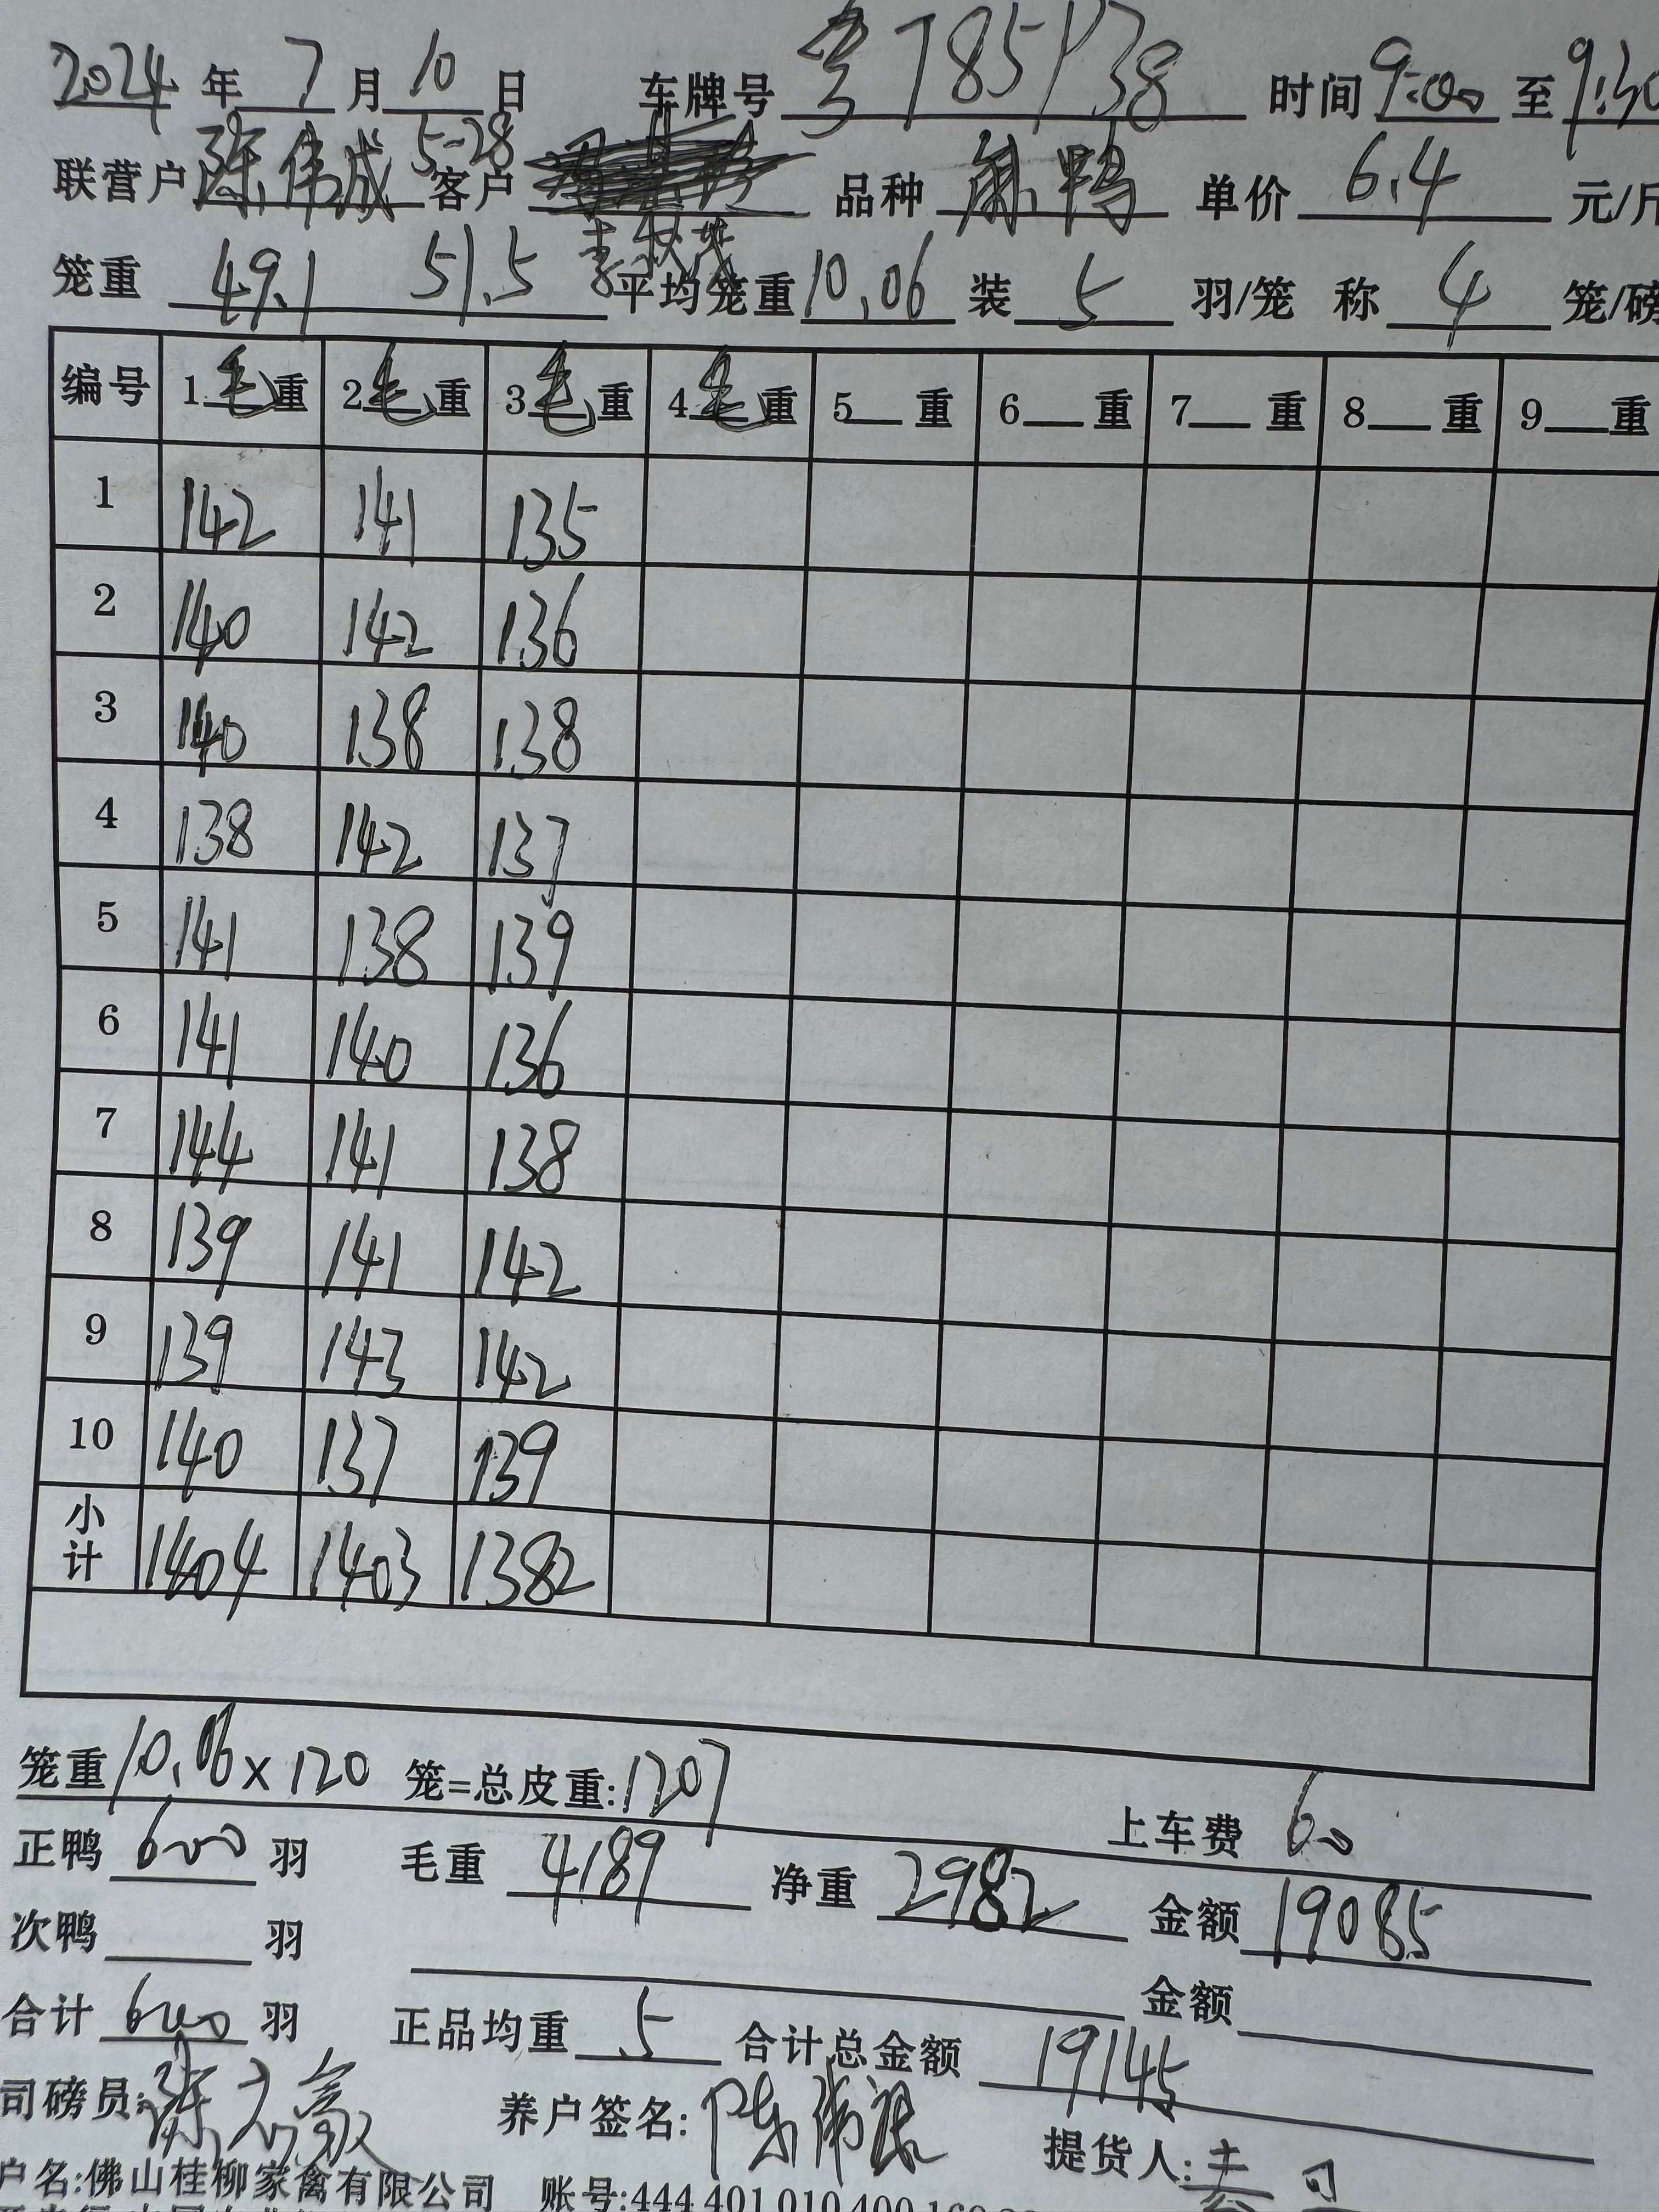 2024 年 7 月 10 日 车牌号 785Y38 时间 9:00 至 9:30
联营户 陈伟成 5-28 客户 品种 麻鸭 单价 6.4 元/斤
笼重 49.1 51.5 平均笼重 10.06 装 5 羽/笼 称 4 笼/磅
编号 1毛重 2毛重 3毛重 4毛重 5 重 6 重 7 重 8 重 9 重
1 142 141 135
2 140 142 136
3 140 138 138
4 138 142 137
5 141 138 139
6 141 140 136
7 144 141 138
8 139 141 142
9 139 143 142
10 140 137 139
小计 1404 1403 1382
笼重 10.06 x 120 笼=总皮重: 1207 上车费 60
正鸭 600 羽 毛重 4189 净重 2982 金额 19085
次鸭 羽 金额
合计 600 羽 正品均重 5 合计总金额 19145
司磅员: 养户签名: 陈伟 提货人:
户名:佛山桂柳家禽有限公司 账号:444 401 010 400